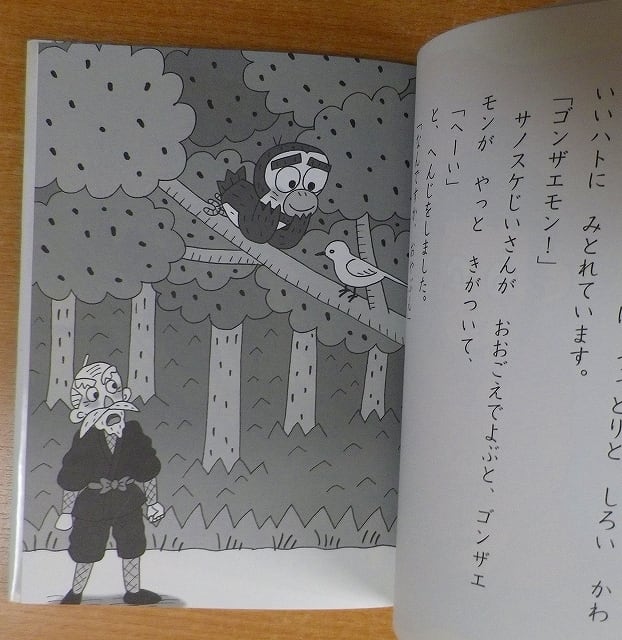 っとりと しろい かわ
いいハトに みとれています。
「ゴンザエモン！」
サノスケじいさんが おおごえでよぶと、ゴンザエ
モンが やっと きがついて、
「へーい」
と、へんじをしました。
「なんですか、おやぶん」